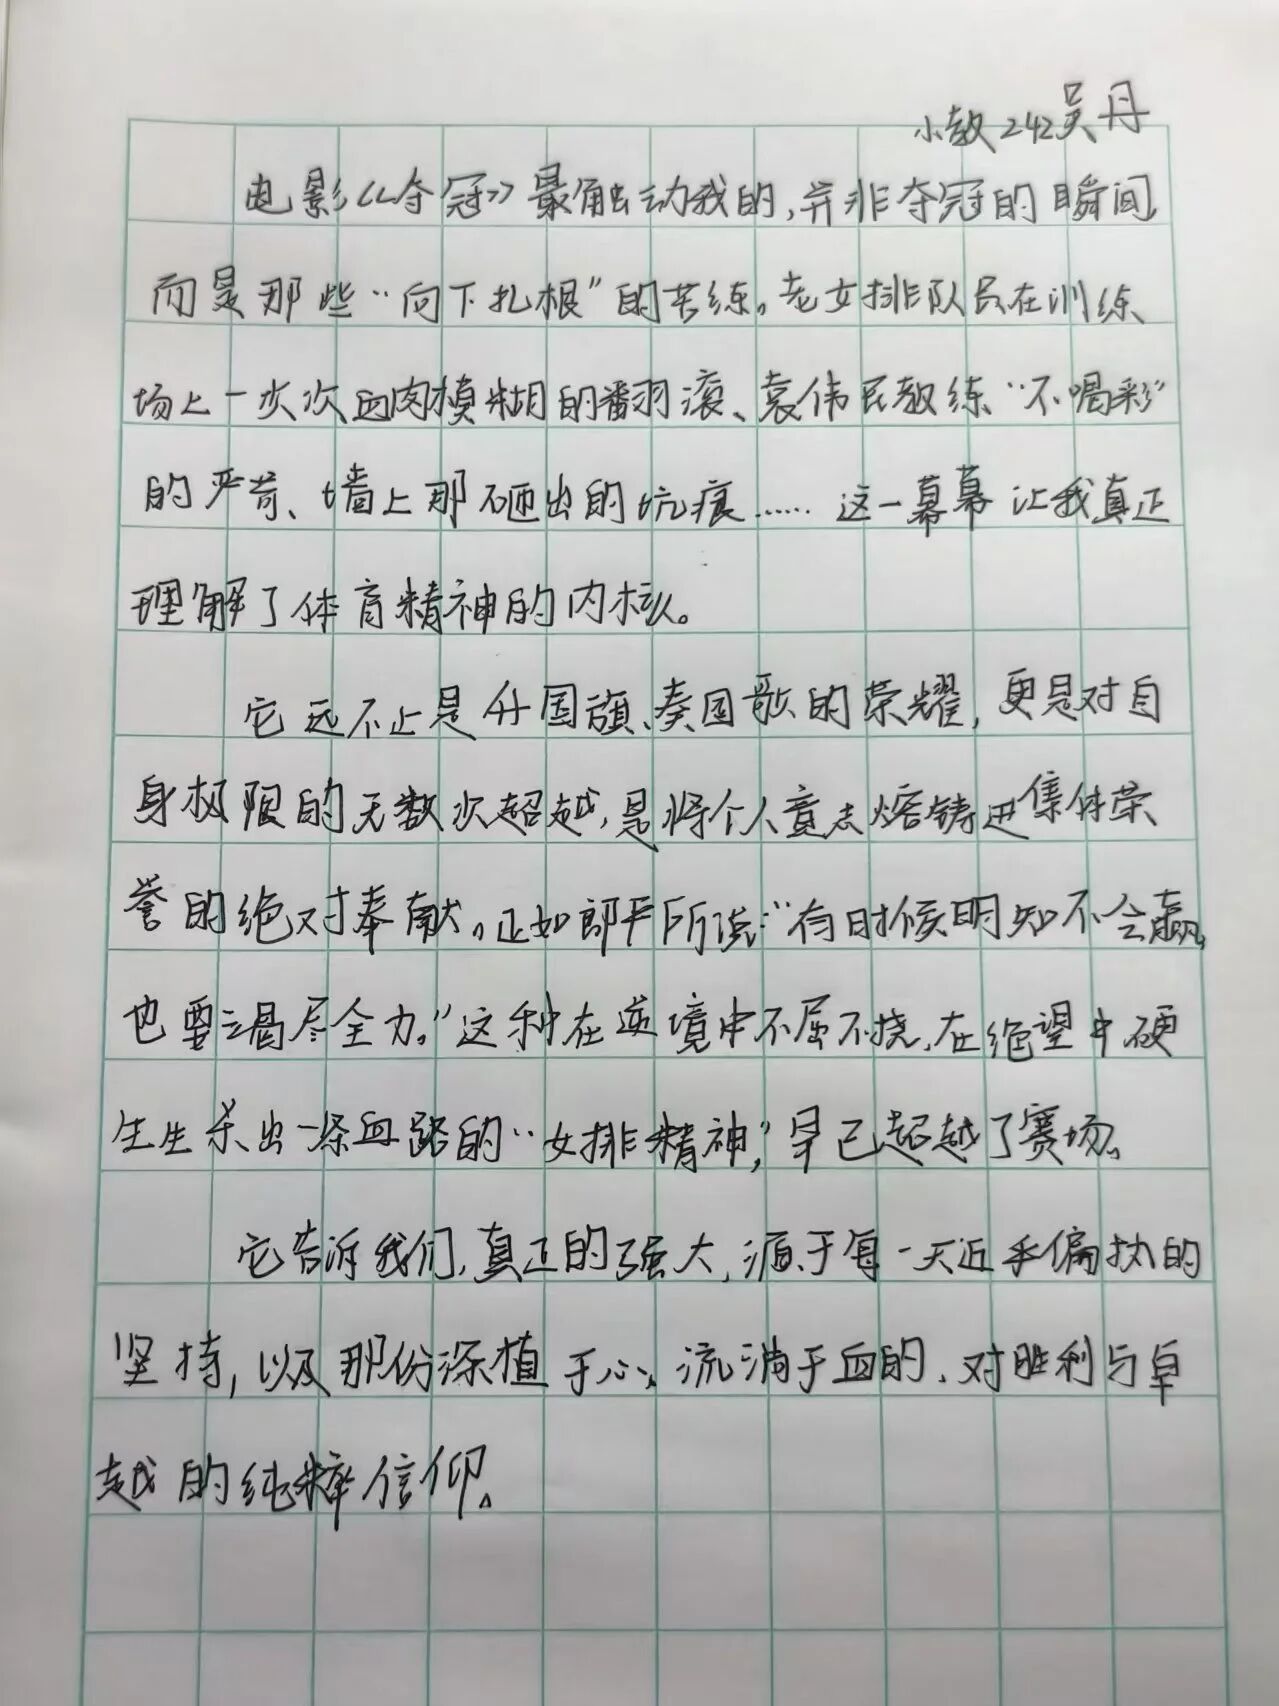 小教242吴丹
电影《夺冠》最触动我的,并非夺冠的瞬间,
而是那些“向下扎根”的苦练。老女排队员在训练
场上一次次血肉模糊的翻滚、袁伟民教练“不喝彩”
的严苛、墙上那砸出的坑痕……这一幕幕让我真正
理解了体育精神的内核。
它远不止是升国旗、奏国歌的荣耀,更是对自
身极限的无数次超越,是将个人意志熔铸进集体荣
誉的绝对奉献。正如郎平所说:“有时候明知不会赢,
也要竭尽全力。”这种在逆境中不屈不挠,在绝望中硬
生生杀出一条血路的“女排精神”,早已超越了赛场。
它告诉我们,真正的强大,源于每一天近乎偏执的
坚持,以及那份深植于心、流淌于血的,对胜利与卓
越的纯粹信仰。